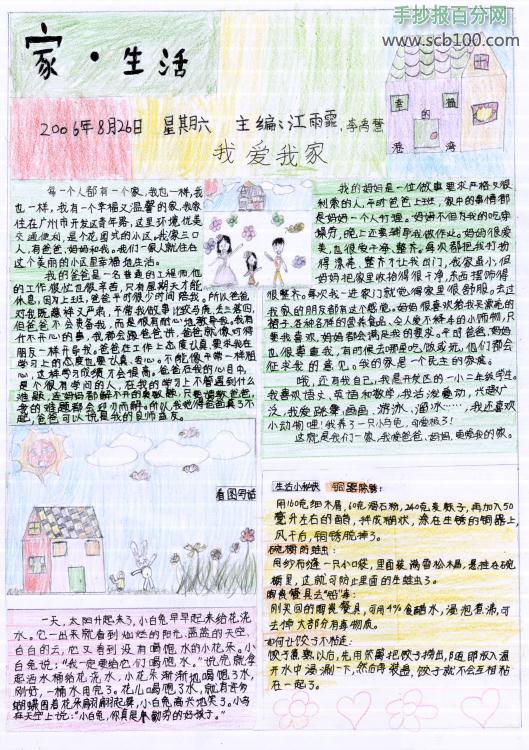 手抄报百分网
www.scb100.com
家·生活
2006年8月26日 星期六 主编:江雨霏、李禹慧
幸福的港湾
我爱我家
每一个人都有一个家,我也一样,我
也一样,我有一个幸福又温馨的家,我家
住在广州市开发区青年路,这里环境优美
交通便利,是个花园式的小区。我家三口
人,有爸爸、妈妈和我。我们一家人就住在
这个美丽的小区里幸福地生活。
我的爸爸是一名普通的工程师,他
的工作很忙也很辛苦,只有星期天才能
休息,因为上班,爸爸平时很少时间陪我。所以爸爸
对我既慈祥又严肃,平常我做事比较马虎,丢三落四,
但爸爸不会责备我,而是很有耐心地教导我。我有
什不开心的事,我都会跟爸爸讲,爸爸就像对待
朋友一样开导我。爸爸在工作上态度认真,要求我在
学习上的态度也要认真、专心。不能像平常一样粗
心,这样学习成绩才会提高。爸爸在我的心目中,
是个很有学问的人,在我的学习上不管遇到什么
难题,连妈妈都解不开的奥数题,只要请教爸爸,
我的难题都会迎刃而解。所以我觉得爸爸真了不
起,爸爸可以说是我的良师益友。
我的妈妈是一位做事要求严格又很
利索的人,平时爸爸上班,家中的事情都
是妈妈一个人打理。妈妈不但为我的吃穿
操劳,晚上还要辅导我做作业。妈妈很爱
美,也很爱干净、整齐。每次都把我打扮
得漂亮、整齐才让我出门,我家虽小,但
妈妈把家里收拾得很干净,东西摆饰得
很整齐。每次我一进家门就觉得家里很舒服。去过
我家的朋友都有这个感觉。妈妈很喜欢给我买漂亮的
裙子、各种各样的营养食品、令人爱不释手的小饰物,只
要我喜欢,妈妈都会满足我的要求。平时爸爸、妈妈
也很尊重我,有时候去哪里吃饭或玩,他们都会
征求我的意见。我的家是一个民主的家庭。
哦,还有我自己,我是开发区的一小二年级学生。
我喜欢语文、英语和数学,我活泼爱动,兴趣广
泛,我爱跳舞、画画、游泳、溜冰……,我还喜欢
小动物哩!我养了一只小乌龟,可爱极了!
这就是我们一家,我爱爸爸、妈妈,更爱我的家。
看图写话
一天,太阳升起来了,小白兔早早起来给花浇
水。它一出来就看到灿烂的阳光,蓝蓝的天空,
白白的云,它又看到没有喝饱水的小花朵。小
白兔说:“我一定要给它们喝饱水。”说完,就拿
起浇水桶给花浇水,小花朵渐渐地喝饱了水,
刚好,一桶水用完了。花儿喝饱了水,就有许多
蝴蝶围着花朵翩翩起舞,小白兔高兴地笑了。小鸟
在天空上说:“小白兔,你真是个勤劳的好孩子。”
生活小秘诀 铜器除锈:
用160克细木屑,60克滑石粉,240克麦麸子,再加入50
毫升左右的醋,拌成糊状,涂在生锈的铜器上,
风干后,铜锈脱掉了。
碗橱防蛀虫:
用纱布缝一只小口袋,里面装满雪松木屑,悬挂在碗
橱里,这就可防止里面的生蛀虫了。
陶瓷餐具去“铅”毒:
刚买回的陶瓷餐具,可用4%食醋水,浸泡煮沸,可
去掉大部分有毒物质。
如何让饺子不粘连:
饺子煮熟以后,先用笊篱把饺子捞出,随即放入温
开水中浸涮一下,然后再装盘,饺子就不会互相粘
在一起了。